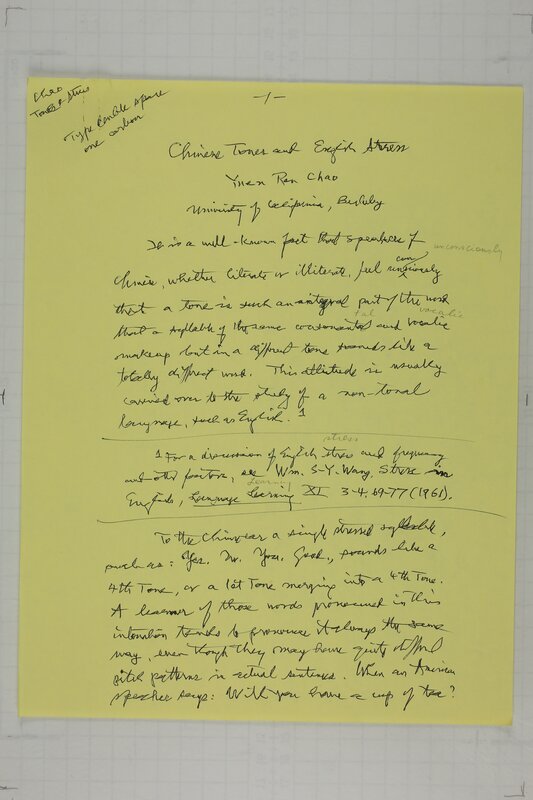 Chao
Tones & Stress
Type double space
one carbon
-1-
Chinese Tones and English Stress
Yuen Ren Chao
University of California, Berkeley
It is a well-known fact that speakers of
unconsciously
Chinese, whether literate or illiterate, feel
that a tone is such an integral part of the word
tal vocalic
that a syllable of the same consonantal and vocalic
makeup but in a different tone sounds like a
totally different word. This attitude is usually
carried over to the study of a non-tonal
language, such as English. 1
stress
1 For a discussion of English stress and frequency
and other factors, see Wm. S-Y. Wang, Stress in
Learning
English, Language Learning XI 3-4, 69-77 (1961).
To the Chinese ear a single stressed syllable,
such as: Yes. No. You. Good., sounds like a
4th Tone, or a 1st Tone merging into a 4th Tone.
A learner of those words pronounced in this
intonation tends to pronounce it always the same
way, even though they may have quite different
pitch patterns in actual sentences. When an American
speaker says: Will you have a cup of tea?